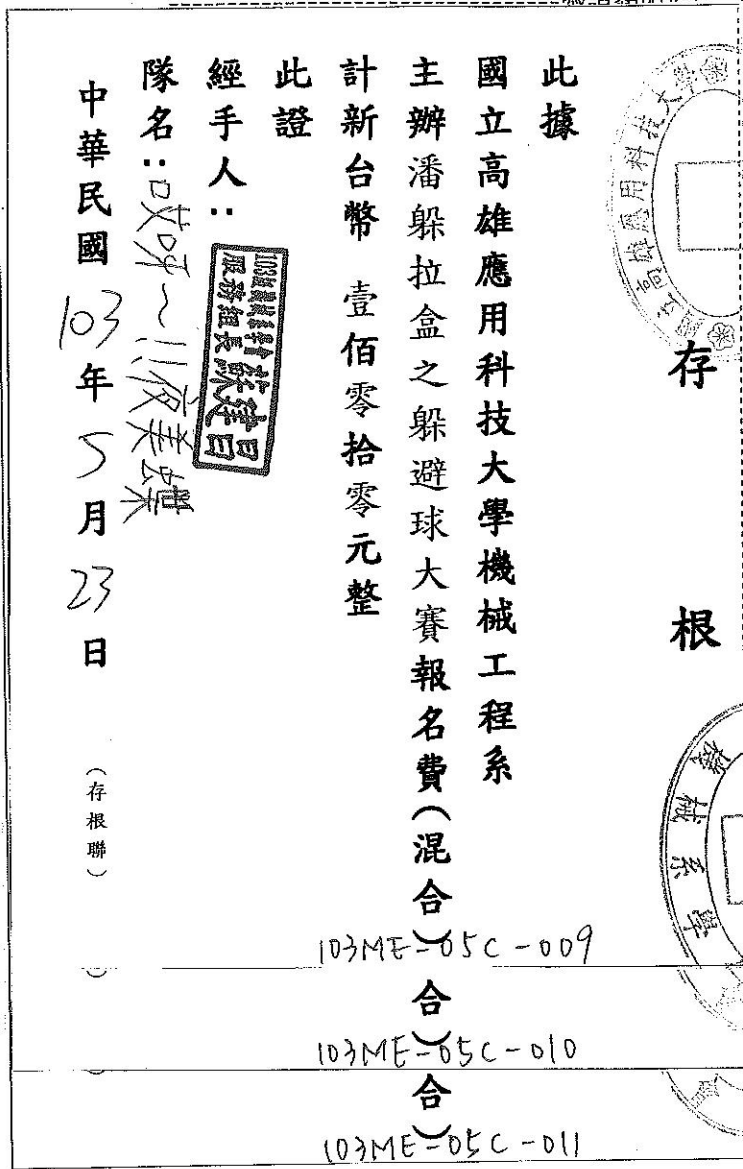 存根
此據
國立高雄應用科技大學機械工程系
主辦潘躲拉盒之躲避球大賽報名費(混合)
計新台幣 壹佰零拾零元整
此證
經手人:
服務組長
蘇建昌
隊名:哎呀~!!夜美蝶
中華民國 103 年 5 月 23 日 (存根聯)
103ME-05C-009
合)
103ME-05C-010
合)
103ME-05C-011
國立高雄應用科技大學
機械系學